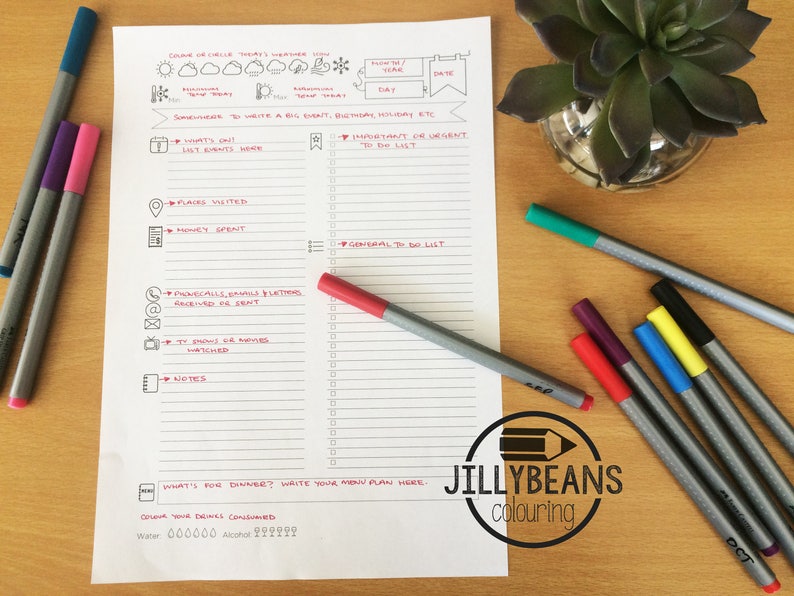 COLOUR OR CIRCLE TODAY'S WEATHER ICON
MONTH/
YEAR
DATE
DAY
Min:
MINIMUM
TEMP TODAY
Max:
MAXIMUM
TEMP TODAY
SOMEWHERE TO WRITE A BIG EVENT, BIRTHDAY, HOLIDAY ETC
WHAT'S ON!
LIST EVENTS HERE
PLACES VISITED
MONEY SPENT
PHONECALLS, EMAILS & LETTERS
RECEIVED OR SENT
TV SHOWS OR MOVIES
WATCHED
NOTES
IMPORTANT OR URGENT
TO DO LIST
GENERAL TO DO LIST
MENU
WHAT'S FOR DINNER? WRITE YOUR MENU PLAN HERE.
COLOUR YOUR DRINKS CONSUMED
Water:
Alcohol:
SEP
OCT
JILLYBEANS
colouring